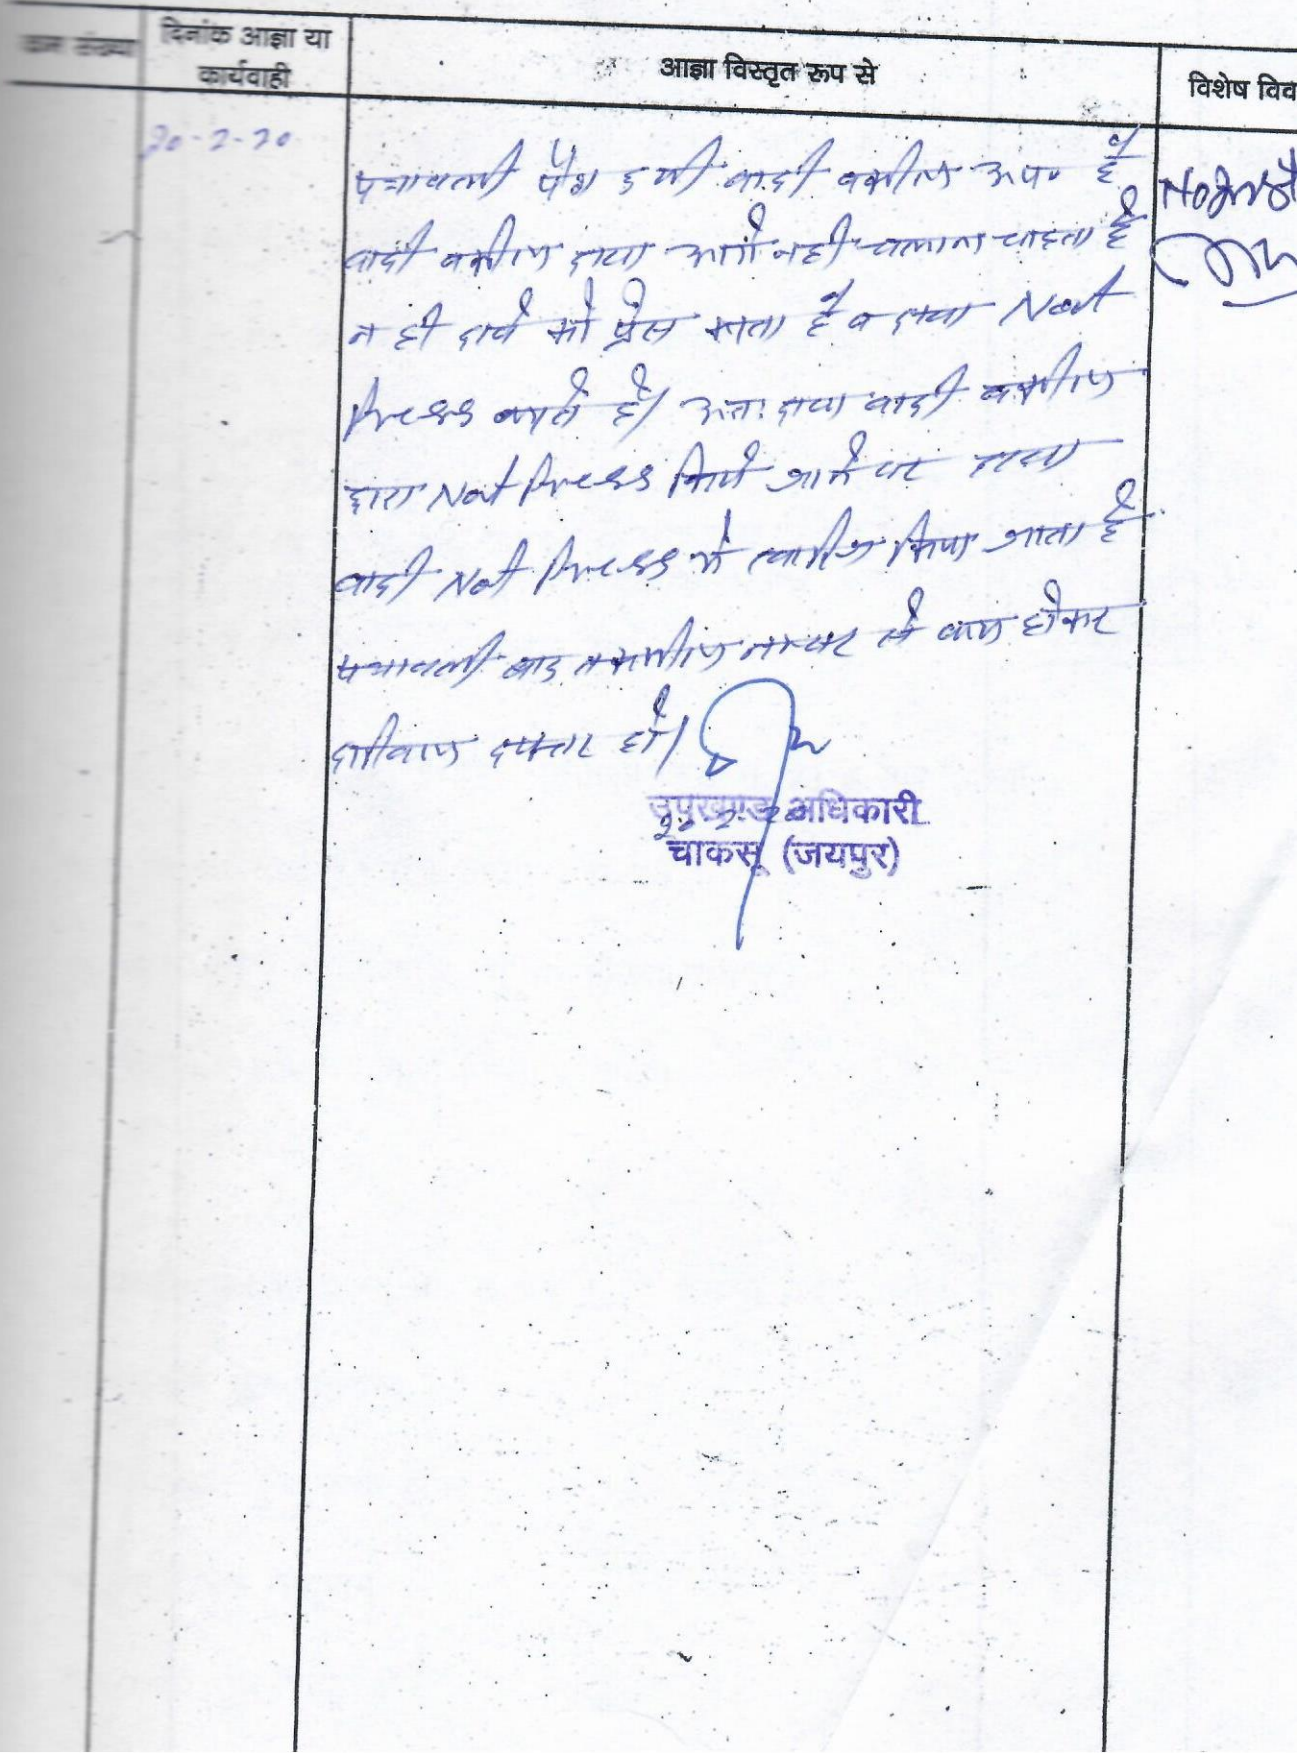 क्रम संख्या
दिनांक आज्ञा या
कार्यवाही
आज्ञा विस्तृत रूप से
विशेष विव
20-2-20
पत्रावली पेश हुयी वादी वकील उप० है
वादी वकील दावा आगे नही चलाना चाहता है
न ही दावे को प्रेस करता है व दावा Not
Press करते है। अतः दावा वादी वकील
द्वारा Not Press किये जाने पर दावा
वादी Not Press मे खारिज किया जाता है
पत्रावली बाद तकमील नम्बर से कम होकर
दाखिल दफ्तर हो।
उपखण्ड अधिकारी
चाकसू (जयपुर)